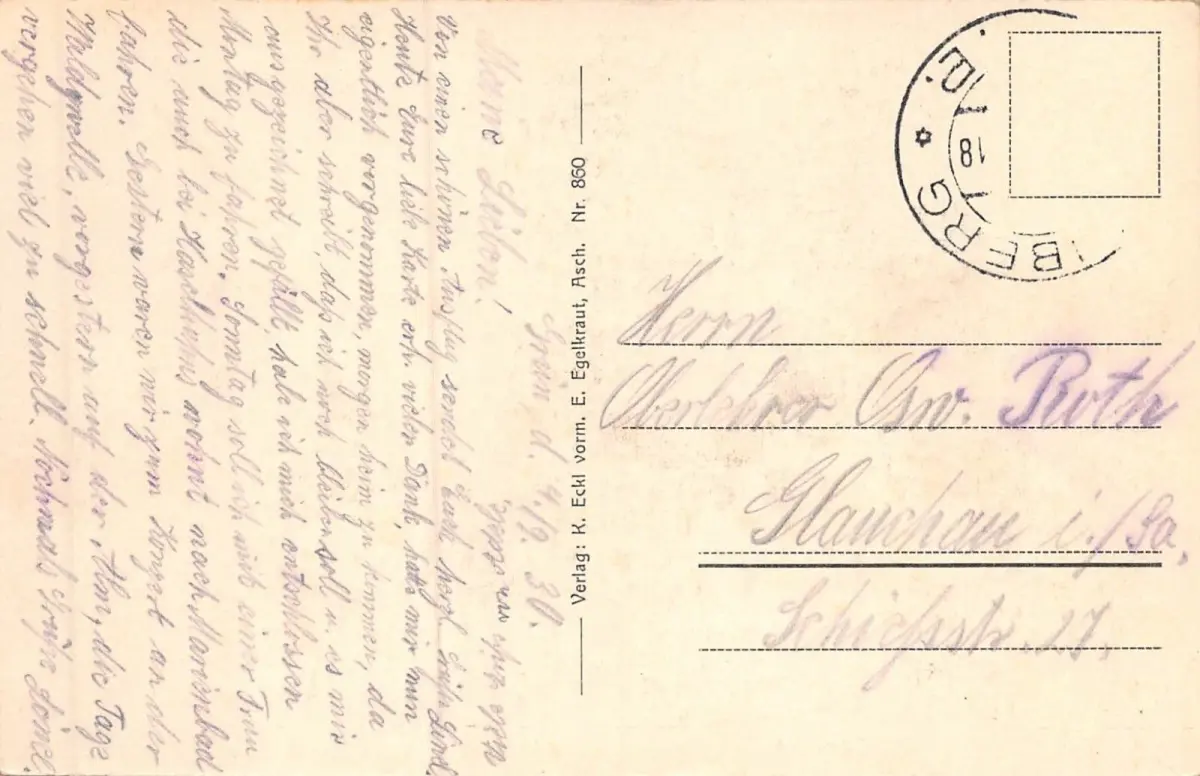 Grün, d. 4./9. 30.
Meine Lieben!
Von einen schönen Ausflug sendet Euch herzl. Grüße
Heute Eure liebe Karte erh. vielen Dank, hatte mir nun
eigentlich vorgenommen, morgen heim zu kommen, da
Ihr aber schreibt, daß ich noch bleiben soll u. es mir
ausgezeichnet gefällt habe ich mich entschlossen
Montag zu fahren. Sonntag soll ich mit einer Frau
die auch bei wohnt nach Marienbad
fahren. Gestern waren wir zum Konzert an der
Waldquelle, vorgestern auf der Alm, die Tage
vergehen viel zu schnell. Nochmals Grüße
Verlag: K. Eckl vorm. E. Egelkraut, Asch. Nr. 860
BERG
18
Herrn
Oberlehrer Osw. Roth
Glauchau i./Sa.
Schießstr. 27.